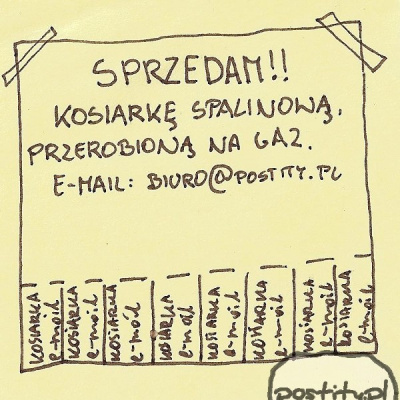 SPRZEDAM!!
KOSIARKĘ SPALINOWĄ,
PRZEROBIONĄ NA GAZ.
E-MAIL: BIURO@POSTITY.PL
KOSIARKA
e-mail
KOSIARKA
e-mail
KOSIARKA
e-mail
KOSIARKA
e-mail
KOSIARKA
e-mail
KOSIARKA
e-mail
KOSIARKA
e-mail
KOSIARKA
e-mail
postity.pl